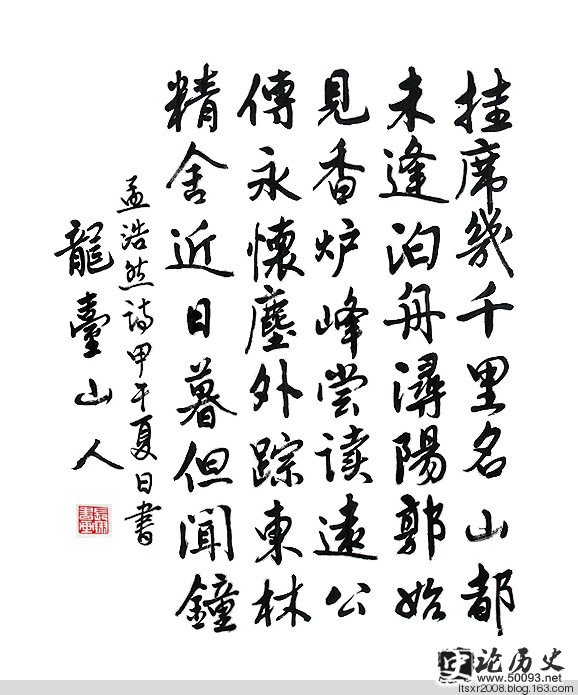 挂席幾千里名山都
未逢泊舟潯陽郭始
見香炉峰尝读遠公
傳永懷塵外踪東林
精舍近日暮但聞鐘
孟浩然诗甲午夏日書
龍臺山人
论历史
www.50093.net
ltsxr2008.blog.163.com